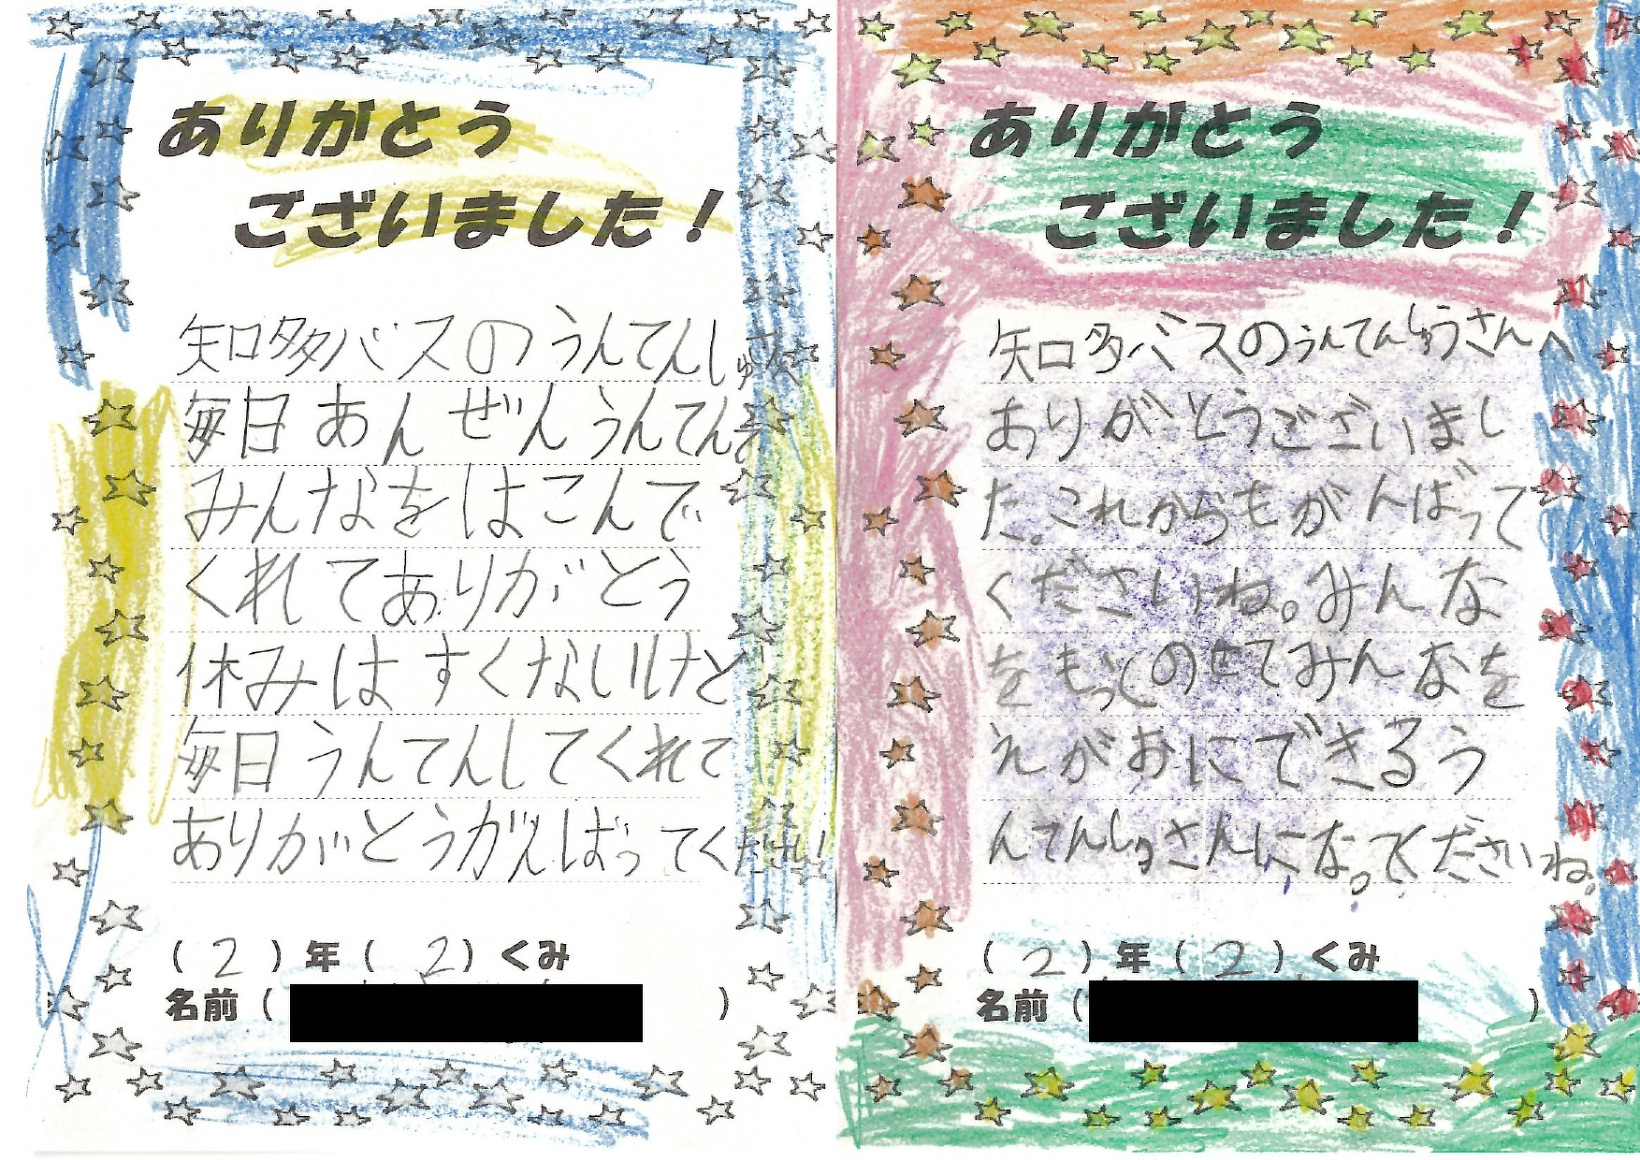 ありがとう
ございました！
知多バスのうんてんしゅ
毎日あんぜんうんてんで
みんなをはこんで
くれてありがとう
休みはすくないけど
毎日うんてんしてくれて
ありがとうがんばってください
(2)年(2)くみ
名前( )
ありがとう
ございました！
知多バスのうんてんしゅうさんへ
ありがとうございまし
た。これからもがんばって
くださいね。みんな
をもっとのせてみんなを
えがおにできるう
んてんしゅさんになってくださいね。
(2)年(2)くみ
名前( )